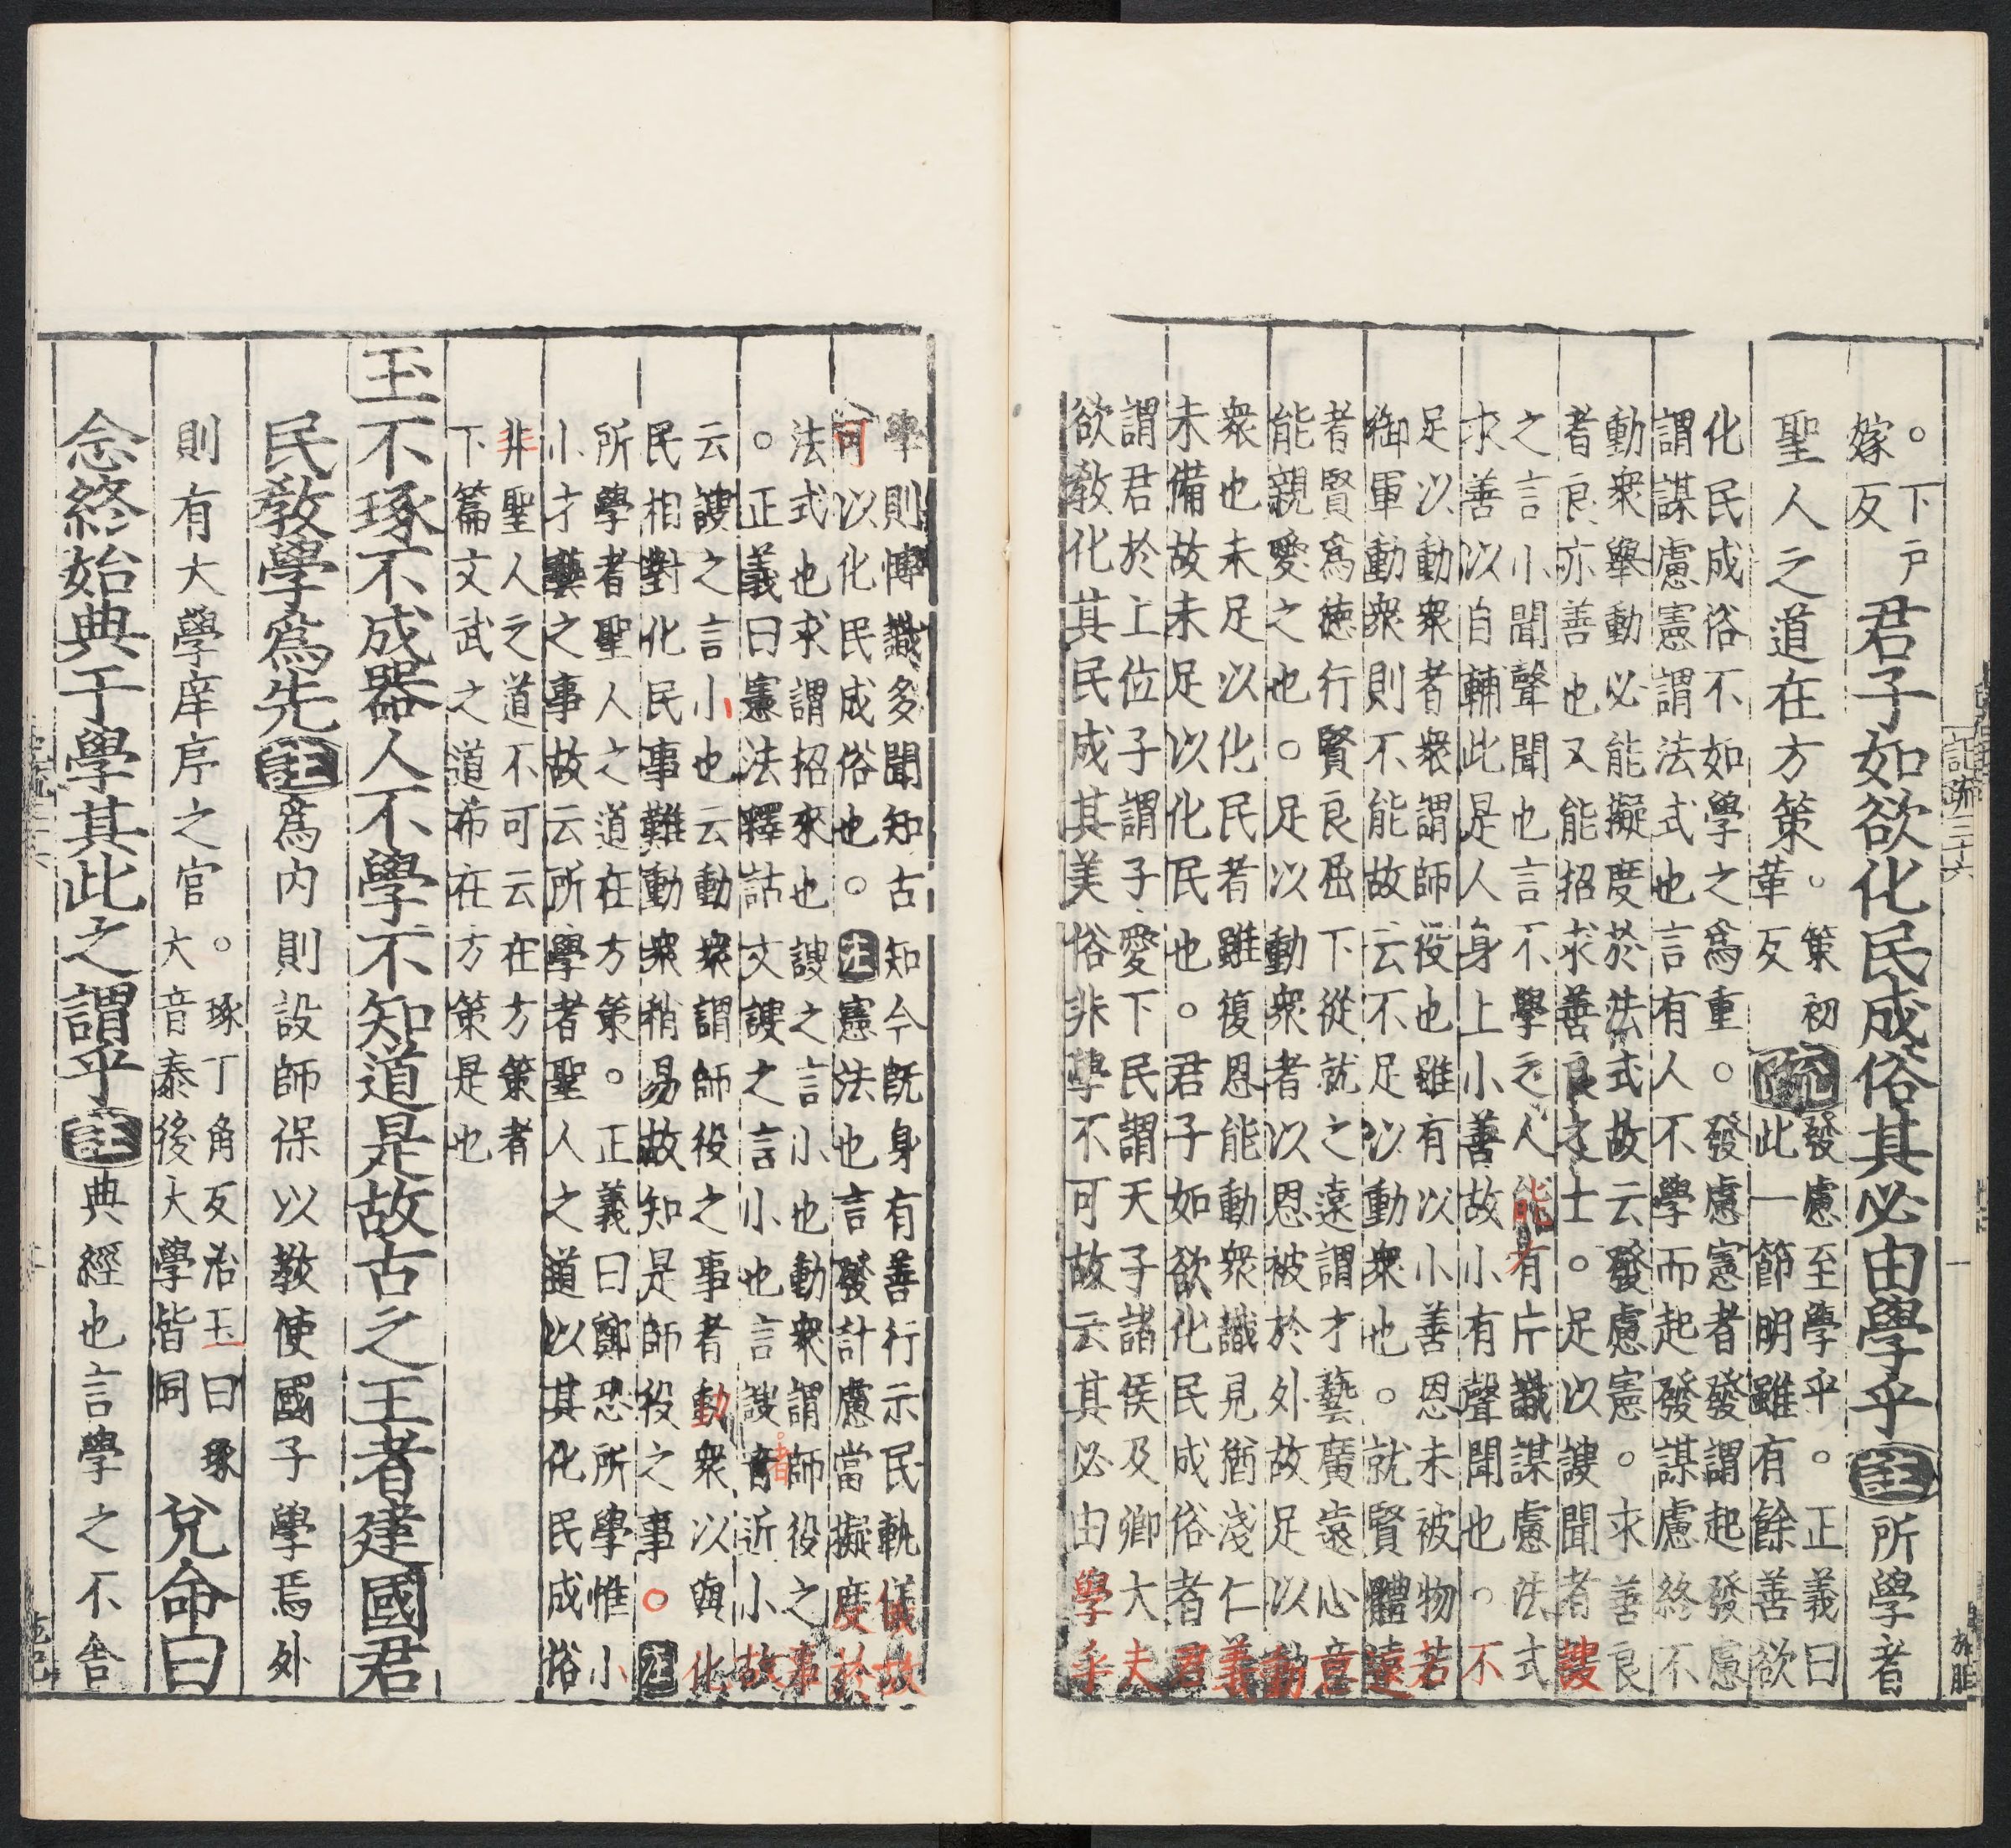 。下戶
嫁反
君子如欲化民成俗其必由學乎註所學者
聖人之道在方策
。策初
革反
疏
發慮至學乎。正義曰
此一節明雖有餘善欲
化民成俗不如學之爲重。發慮憲者發謂起發慮
謂謀慮憲謂法式也言有人不學而起發謀慮終不
動衆舉動必能擬度於法式故云發慮憲。求善良
者良亦善也又能招求善良之士。足以謏聞者謏
之言小聞聲聞也言不學之人能有片識謀慮法式
求善以自輔此是人身上小善故小有聲聞也。不
足以動衆者衆謂師役也雖有以小善恩未被物若
御軍動衆則不能故云不足以動衆也。就賢體遠
者賢爲德行賢良屈下從就之遠謂才藝廣遠心意
能親愛之也。足以動衆者以恩被於外故足以動
衆也未足以化民者雖復恩能動衆識見猶淺仁義
未備故未足以化民也。君子如欲化民成俗者君
謂君於上位子謂子愛下民謂天子諸侯及卿大夫
欲教化其民成其美俗非學不可故云其必由學乎
記疏三十六
一
學則博識多聞知古知今既身有善行示民軌儀故
可以化民成俗也。注憲法也言發計慮當擬度於
法式也求謂招來也謏之言小也動衆謂師役之事
。正義曰憲法釋詁文謏之言小也言謏音近小故
者
云謏之言小也云動衆謂師役之事者動衆以與化
民相對化民事難動衆稍易故知是師役之事。注
所學者聖人之道在方策。正義曰鄭恐所學惟小
小才藝之事故云所學者聖人之道以其化民成俗
非聖人之道不可云在方策者
下篇文武之道布在方策是也
玉不琢不成器人不學不知道是故古之王者建國君
民教學爲先註爲內則設師保以教使國子學焉外
則有大學庠序之官
。琢丁角反治玉曰琢
大音泰後大學皆同
兌命曰
念終始典于學其此之謂乎註典經也言學之不舍